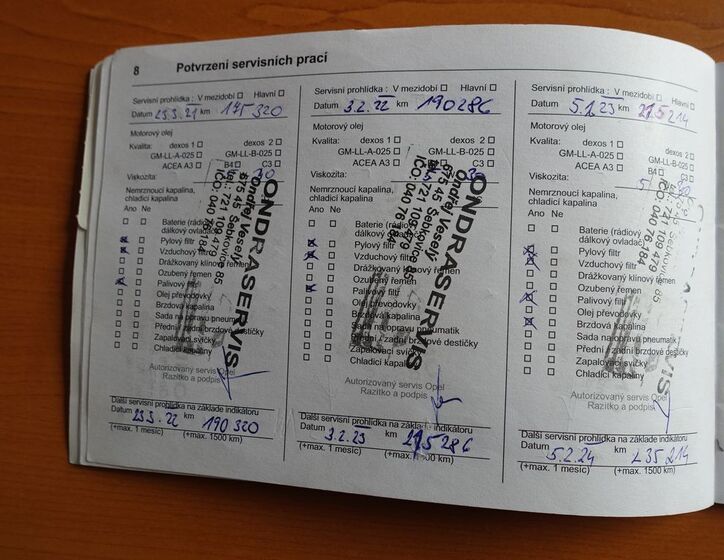 8 Potvrzení servisních prací
Servisní prohlídka : V mezidobí Hlavní
Datum 23.3.21 km 175320
Motorový olej
dexos 1 dexos 2
Kvalita: GM-LL-A-025 GM-LL-B-025
ACEA A3 B4 C3
Viskozita: 30
Nemrznoucí kapalina,
chladící kapalina
Ano Ne
Baterie (rádiový
dálkový ovladač)
Pylový filtr
Vzduchový filtr
Drážkovaný klínový řemen
Ozubený řemen
Palivový filtr
Olej převodovky
Brzdová kapalina
Sada na opravu pneumatik
Přední / zadní brzdové destičky
Zapalovací svíčky
Chladící kapaliny
Autorizovaný servis Opel
Razítko a podpis
ONDRASERVIS
Ondřej Veselý
675 45 Šebkovice 85
tel.: 721 109 479
IČO: 040 76 184
Další servisní prohlídka na základě indikátoru
Datum 23.3.22 km 190320
(+max. 1 měsíc) (+max. 1500 km)
Servisní prohlídka : V mezidobí Hlavní
Datum 3.2.22 km 190286
Motorový olej
dexos 1 dexos 2
Kvalita: GM-LL-A-025 GM-LL-B-025
ACEA A3 B4 C3
Viskozita: 30
Nemrznoucí kapalina,
chladící kapalina
Ano Ne
Baterie (rádiový
dálkový ovladač)
Pylový filtr
Vzduchový filtr
Drážkovaný klínový řemen
Ozubený řemen
Palivový filtr
Olej převodovky
Brzdová kapalina
Sada na opravu pneumatik
Přední / zadní brzdové destičky
Zapalovací svíčky
Chladící kapaliny
Autorizovaný servis Opel
Razítko a podpis
ONDRASERVIS
Ondřej Veselý
675 45 Šebkovice 85
721 109 479
IČO: 040 76 184
Další servisní prohlídka na základě indikátoru
Datum 3.2.23 km 215286
(+max. 1 měsíc) (+max. 1500 km)
Servisní prohlídka : V mezidobí Hlavní
Datum 5.1.23 km 215214
Motorový olej
dexos 1 dexos 2
Kvalita: GM-LL-A-025 GM-LL-B-025
ACEA A3 B4 C3
Viskozita: 5/ 30
Nemrznoucí kapalina,
chladící kapalina
Ano Ne
Baterie (rádiový
dálkový ovladač)
Pylový filtr
Vzduchový filtr
Drážkovaný klínový řemen
Ozubený řemen
Palivový filtr
Olej převodovky
Brzdová kapalina
Sada na opravu pneumatik
Přední / zadní brzdové destičky
Zapalovací svíčky
Chladící kapaliny
Autorizovaný servis Opel
Razítko a podpis
Šebkovice 85
721 109 479
040 76 184
Další servisní prohlídka na základě indikátoru
Datum 5.2.24 km 235214
(+max. 1 měsíc) (+max. 1500 km)